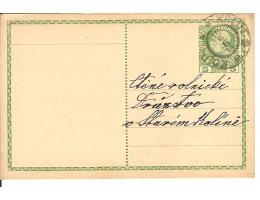 5
Ctěné rolnické
Družstvo
v Starém Kolíně